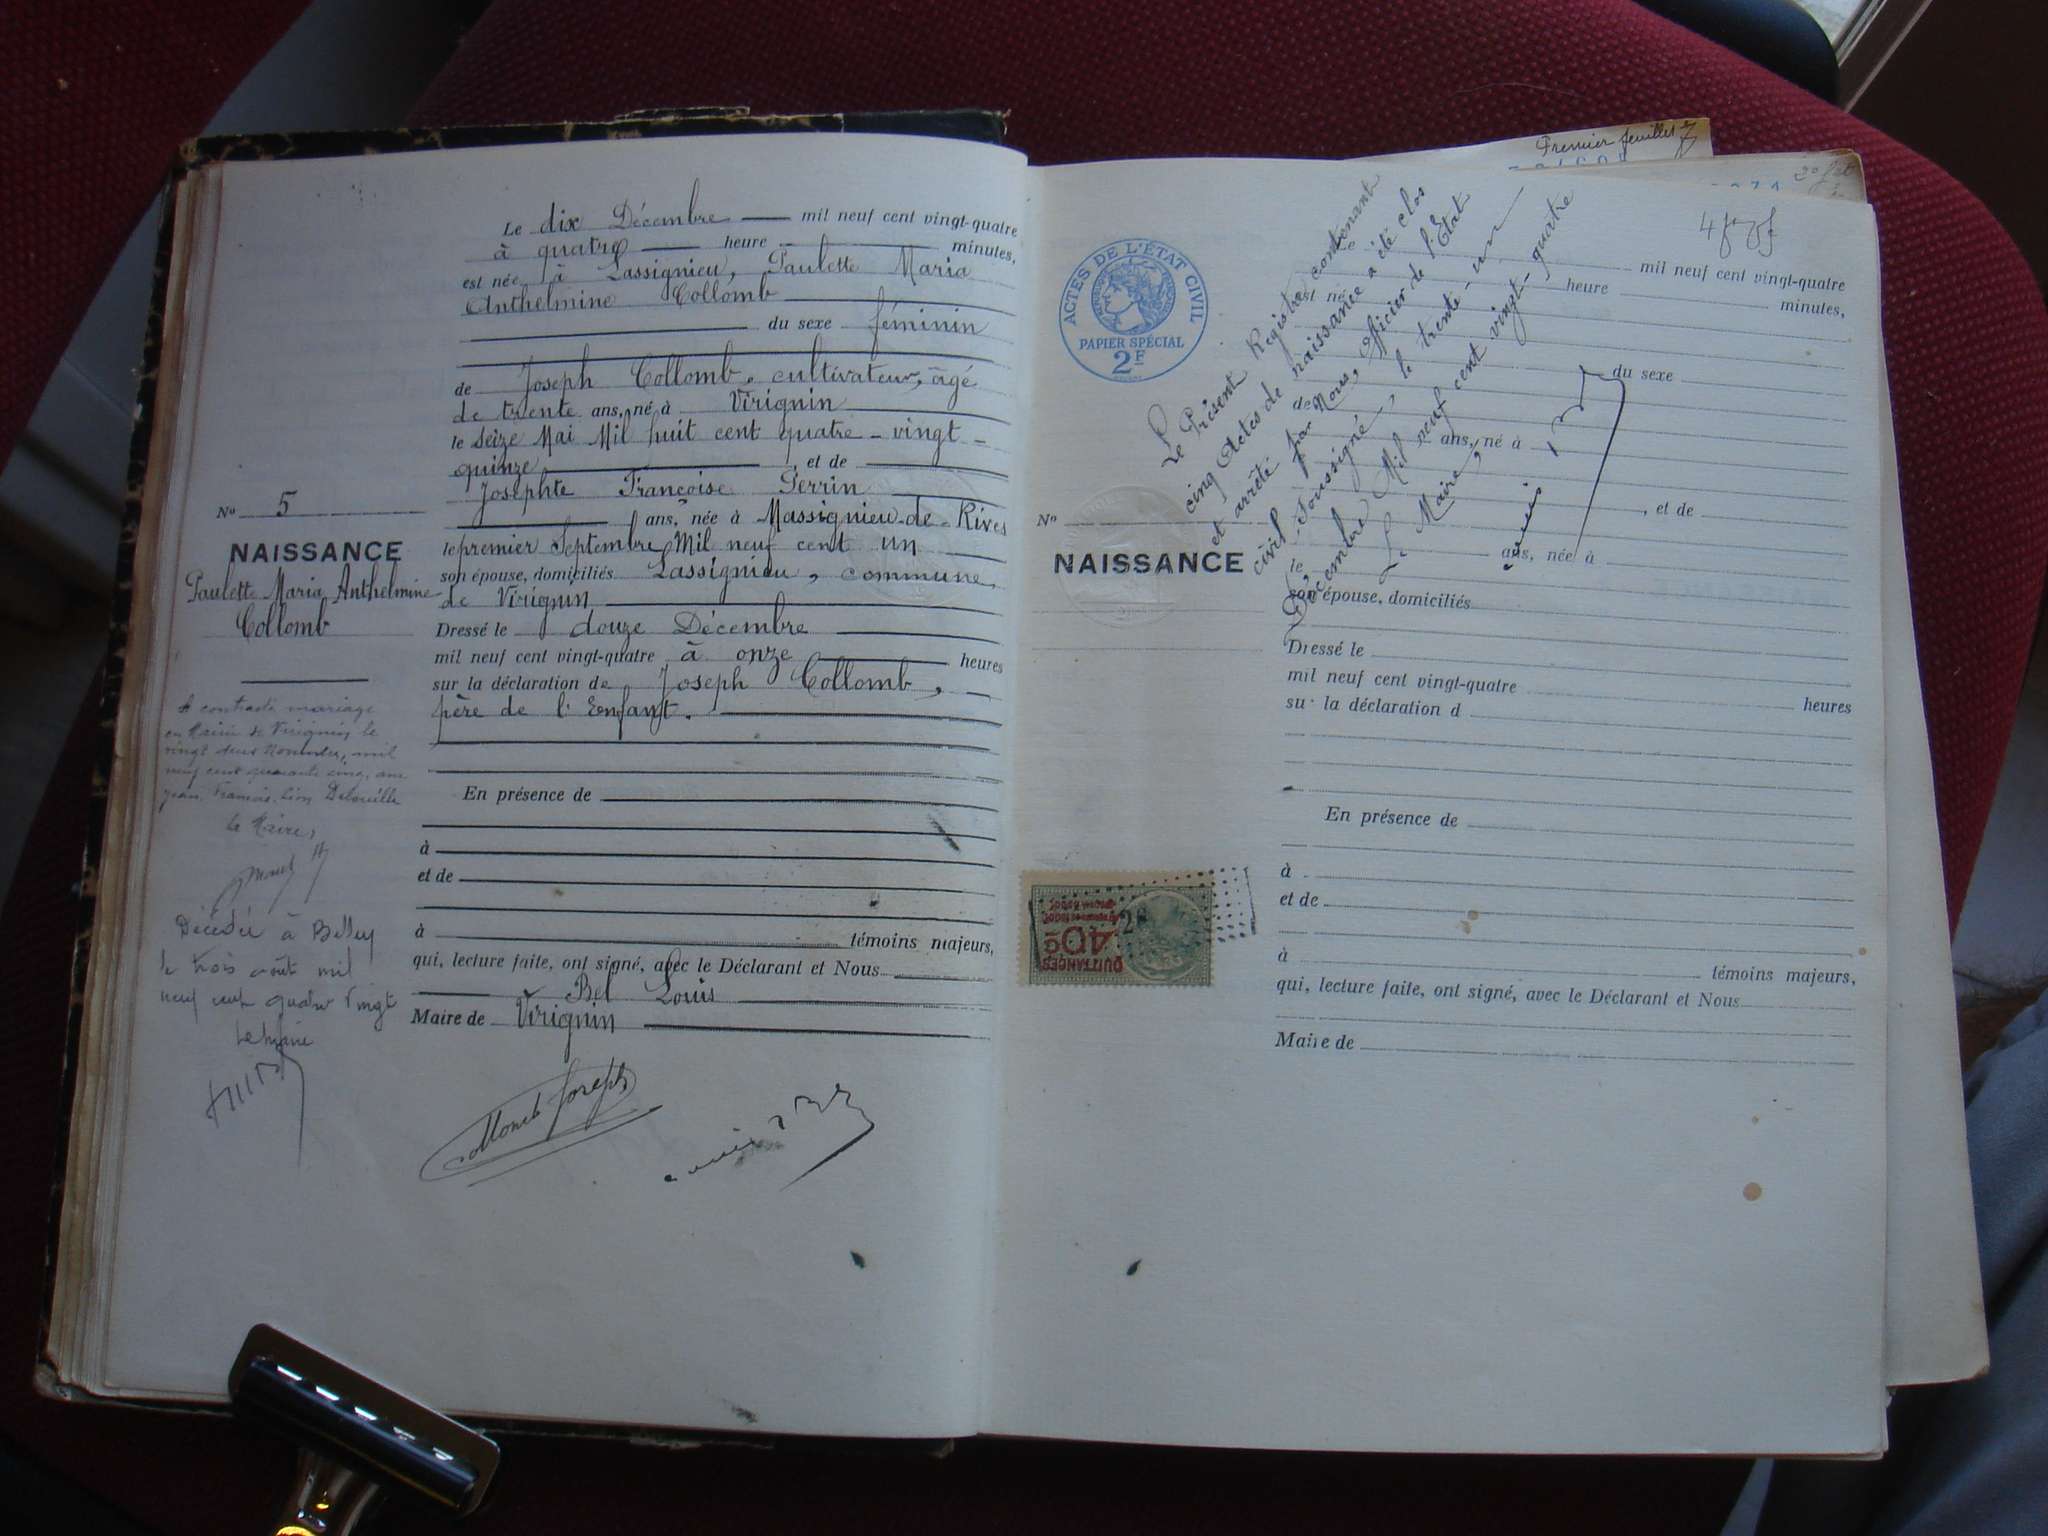 Le dix Décembre mil neuf cent vingt-quatre
à quatre heure minutes,
est née à Lassignieu, Paulette Maria
Anthelmine Collomb
du sexe féminin
de Joseph Collomb, cultivateur, âgé
de trente ans, né à Virignin
le Seize Mai Mil huit cent quatre-vingt-
quinze, et de
Josephte Françoise Perrin
ans, née à Massignieu-de-Rives
le premier Septembre Mil neuf cent un
son épouse, domiciliés Lassignieu, commune
de Virignin
Dressé le douze Décembre
mil neuf cent vingt-quatre à onze heures
sur la déclaration de Joseph Collomb,
père de l'Enfant.
En présence de
à
et de
à témoins majeurs,
qui, lecture faite, ont signé, avec le Déclarant et Nous
Bel Louis
Maire de Virignin
Collomb Joseph
No 5
NAISSANCE
Paulette Maria Anthelmine
Collomb
A contracté mariage
en Mairie de Virignin le
vingt deux Novembre, mil
neuf cent quarante cinq, avec
Jean, François, Léon
Le Maire,
Décédée à Belley
le trois août mil
neuf cent quatre vingt
Le Maire
Premier feuillet
4
ACTES DE L'ÉTAT CIVIL
PAPIER SPÉCIAL
2F
Le Présent Registre contenant
cinq Actes de naissance a été clos
et arrêté par Nous, Officier de l'Etat
civil soussigné, le trente-un
Décembre Mil neuf cent vingt-quatre
Le Maire,
Le
mil neuf cent vingt-quatre
heure minutes,
est né
du sexe
de
ans, né à
, et de
No
NAISSANCE
ans, née à
le
son épouse, domiciliés
Dressé le
mil neuf cent vingt-quatre
heures
su la déclaration d
En présence de
à
et de
à témoins majeurs,
qui, lecture faite, ont signé, avec le Déclarant et Nous
Maire de
QUITTANCES
40c